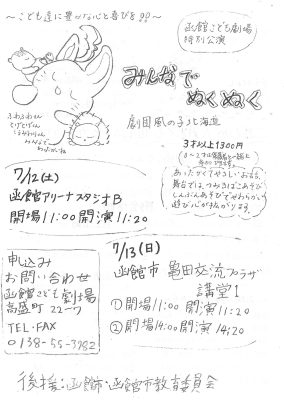 ～こども達に豊かな心と喜びを!!～
函館こども劇場
特別公演
みんなで
ぬくぬく
劇団風の子北海道
3才以上1300円
あったかくてやさしいお話。
舞台では、つみきばこあそび
しんぶんあそびでやわらかい
遊び心が広がります。
7/12(土)
函館アリーナスタジオB
開場11:00 開演11:20
7/13(日)
函館市 亀田交流プラザ
講堂1
①開場11:00 開演11:20
②開場14:00 開演14:20
申し込み
お問い合わせ
函館こども劇場
高盛町22-7
TEL・FAX
0138-55-3982
後援:函館市・函館市教育委員会